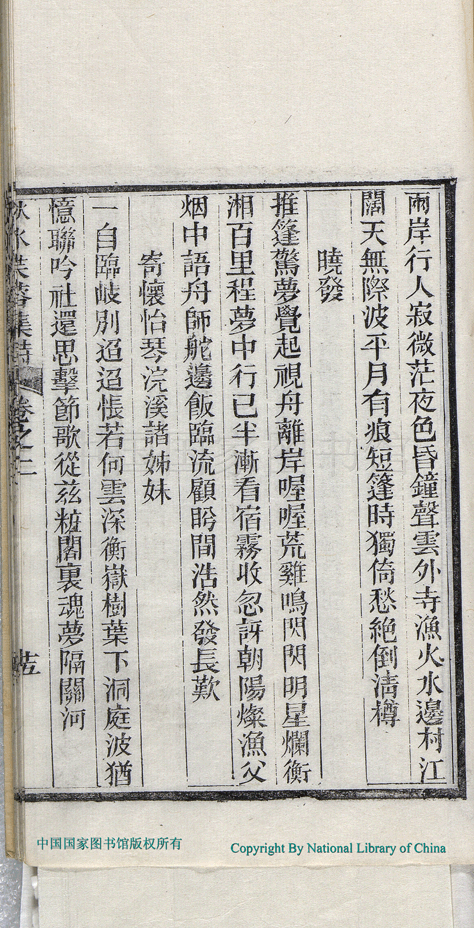 兩岸行人寂微茫夜色昏鐘聲雲外寺漁火水邊村江
闊天無際波平月有痕短篷時獨倚愁絕倒清樽
曉發
推篷驚夢覺起視舟離岸喔喔荒雞鳴閃閃明星爛衡
湘百里程夢中行已半漸看宿霧收忽訝朝陽燦漁父
烟中語舟師舵邊飯臨流顧盻間浩然發長歎
寄懷怡琴浣溪諸姊妹
一自臨岐別迢迢悵若何雲深衡嶽樹葉下洞庭波猶
憶聯吟社還思擊節歌從茲粧閣裏魂夢隔關河
秋水芙蓉集詩 卷之二
中国国家图书馆版权所有
Copyright By National Library of China